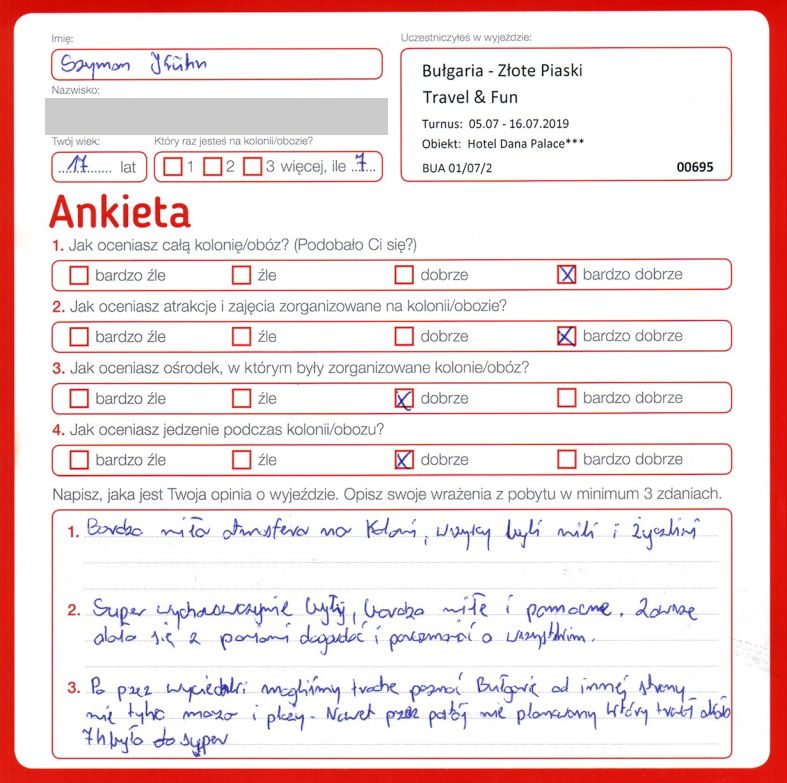 Imię:
Szymon Kühn
Nazwisko:
Twój wiek:
17 lat
Który raz jesteś na kolonii/obozie?
1 2 3 więcej, ile 7
Uczestniczyłeś w wyjeździe:
Bułgaria - Złote Piaski
Travel & Fun
Turnus: 05.07 - 16.07.2019
Obiekt: Hotel Dana Palace***
BUA 01/07/2 00695
Ankieta
1. Jak oceniasz całą kolonię/obóz? (Podobało Ci się?)
bardzo źle źle dobrze bardzo dobrze
2. Jak oceniasz atrakcje i zajęcia zorganizowane na kolonii/obozie?
bardzo źle źle dobrze bardzo dobrze
3. Jak oceniasz ośrodek, w którym były zorganizowane kolonie/obóz?
bardzo źle źle dobrze bardzo dobrze
4. Jak oceniasz jedzenie podczas kolonii/obozu?
bardzo źle źle dobrze bardzo dobrze
Napisz, jaka jest Twoja opinia o wyjeździe. Opisz swoje wrażenia z pobytu w minimum 3 zdaniach.
1. Bardzo miła atmosfera na Koloni, wszyscy byli mili i życzliwi
2. Super wychowawczynie były, bardzo miłe i pomocne. Zawsze
dało się z paniami dogadać i porozmawiać o wszystkim.
3. Po przez wycieczki mogliśmy trochę poznać Bułgarię od innej strony
nie tylko morze i plaży. Nawet przez postój nie planowany który trwał około
7h było do super